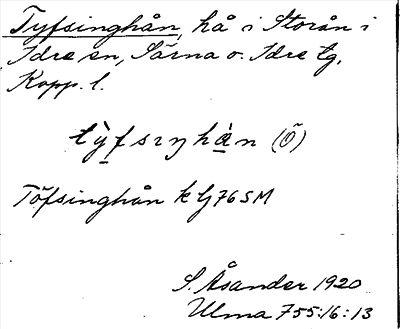 Tyfsinghån, hå i Storån i
Idre sn, Särna o. Idre tg,
Kopp. l.
tỳfsıŋhàn (ö)
Töfsinghån k G76SM
S. Åsander 1920
Ulma 755:16:13